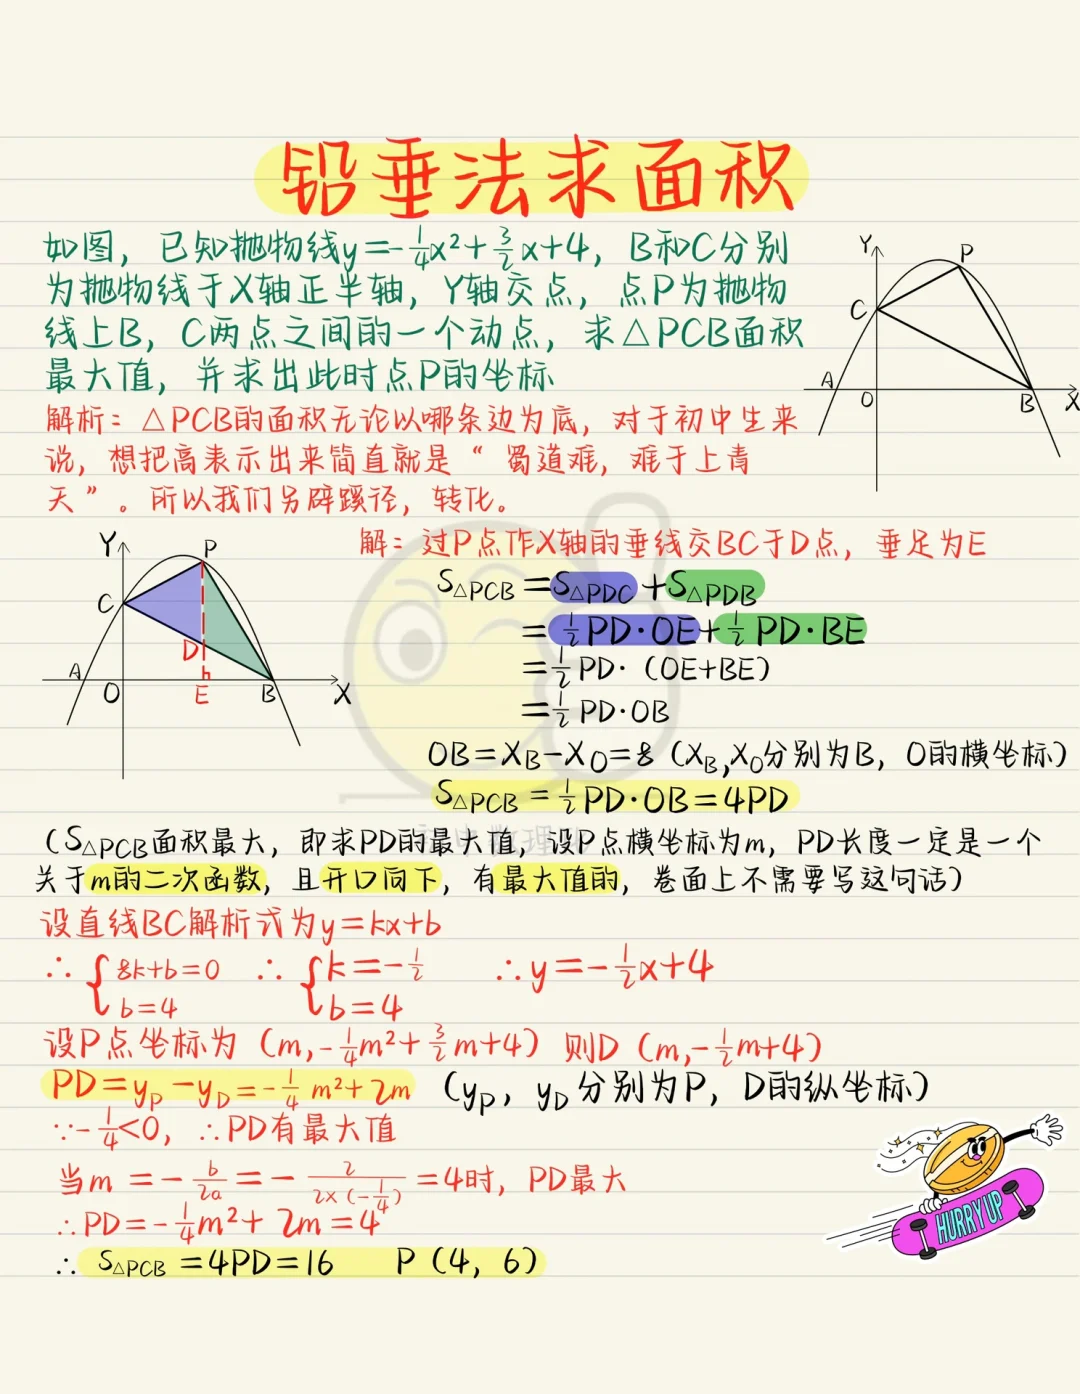 铅垂法求面积
如图，已知抛物线y=-1/4x²+3/2x+4，B和C分别
为抛物线于X轴正半轴，Y轴交点，点P为抛物
线上B，C两点之间的一个动点，求△PCB面积
最大值，并求出此时点P的坐标
Y
P
C
A
O
B
X
解析：△PCB的面积无论以哪条边为底，对于初中生来
说，想把高表示出来简直就是“蜀道难，难于上青
天”。所以我们另辟蹊径，转化。
Y
P
C
D
A
O
E
B
X
解：过P点作X轴的垂线交BC于D点，垂足为E
S△PCB=S△PDC+S△PDB
=1/2PD·OE+1/2PD·BE
=1/2PD·（OE+BE）
=1/2PD·OB
OB=X_B-X_O=8（X_B,X_O分别为B，O的横坐标）
S△PCB=1/2PD·OB=4PD
（S△PCB面积最大，即求PD的最大值，设P点横坐标为m，PD长度一定是一个
关于m的二次函数，且开口向下，有最大值的，卷面上不需要写这句话）
设直线BC解析式为y=kx+b
∴{8k+b=0 ∴{k=-1/2 ∴y=-1/2x+4
b=4 b=4
设P点坐标为（m,-1/4m²+3/2m+4）则D（m,-1/2m+4）
PD=y_P-y_D=-1/4m²+2m（y_P，y_D分别为P，D的纵坐标）
∵-1/4<0，∴PD有最大值
当m=-b/2a=-2/2×(-1/4)=4时，PD最大
∴PD=-1/4m²+2m=4
∴S△PCB=4PD=16 P（4，6）
HURRY UP